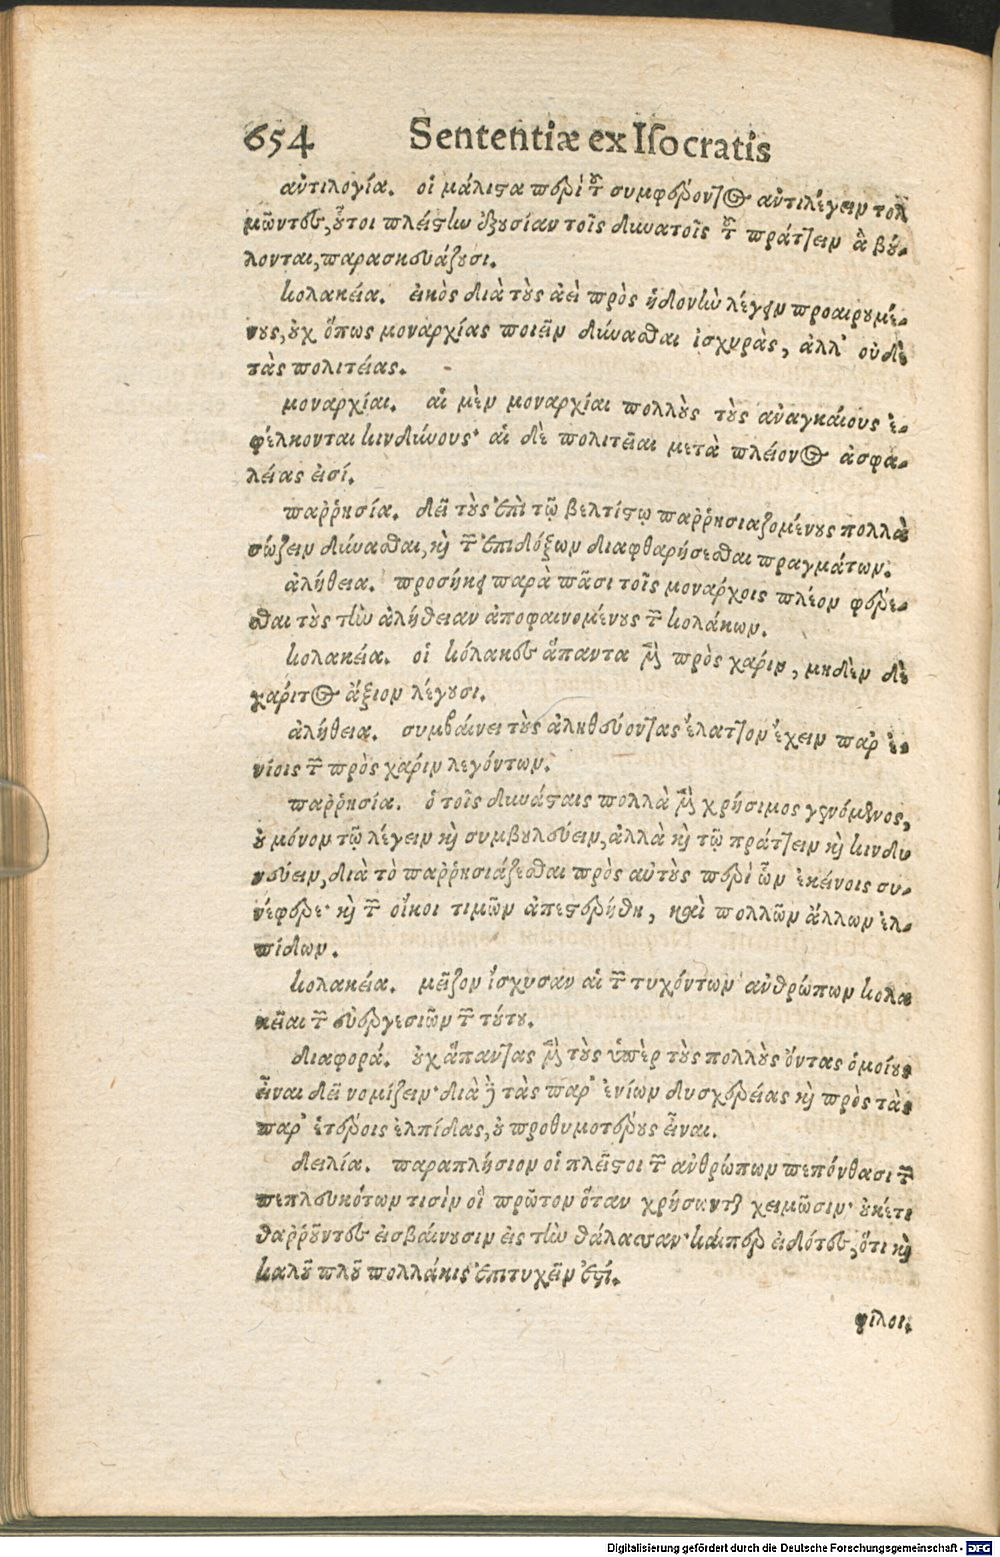 654 Sententiæ ex Iſocratis
ἀντιλογία. οἱ μάλιστα περὶ τοῦ συμφέροντος ἀντιλέγειν τολ
μῶντες, οὗτοι πλείστην ἐξουσίαν τοῖς δυνατοῖς τοῦ πράττειν ἃ βού-
λονται, παρασκευάζουσι.
κολακεία. εἰκὸς διὰ τοὺς ἀεὶ πρὸς ἡδονὴν λέγειν προαιρουμέ-
νους, οὐχ ὅπως μοναρχίας ποιεῖν δύνασθαι ἰσχυρὰς, ἀλλ' οὐδὲ
τὰς πολιτείας.
μοναρχίαι. αἱ μὲν μοναρχίαι πολλοὺς τοὺς ἀναγκαίους ἐ-
φέλκονται κινδύνους· αἱ δὲ πολιτεῖαι μετὰ πλείονος ἀσφα-
λείας εἰσί.
παῤῥησία. δεῖ τοὺς ἐπὶ τῷ βελτίστῳ παῤῥησιαζομένους πολλὰ
σώζειν δύνασθαι, καὶ τῶν ἐπιδόξων διαφθαρήσεσθαι πραγμάτων.
ἀλήθεια. προσήκει παρὰ πᾶσι τοῖς μονάρχοις πλέον φέρε-
σθαι τοὺς τὴν ἀλήθειαν ἀποφαινομένους τῶν κολάκων.
κολακεία. οἱ κόλακες ἅπαντα μὲν πρὸς χάριν, μηδὲν δὲ
χάριτος ἄξιον λέγουσι.
ἀλήθεια. συμβαίνει τοὺς ἀληθεύοντας ἔλαττον ἔχειν παρ' ἐ-
νίοις τῶν πρὸς χάριν λεγόντων.
παῤῥησία. ὁ τοῖς δυνάσταις πολλὰ μὲν χρήσιμος γενόμενος,
οὐ μόνον τῷ λέγειν καὶ συμβουλεύειν, ἀλλὰ καὶ τῷ πράττειν καὶ κινδυ
νεύειν, διὰ τὸ παῤῥησιάζεσθαι πρὸς αὐτοὺς περὶ ὧν ἐκείνοις συ-
νέφερε· καὶ τῶν οἴκοι τιμῶν ἀπεστερήθη, καὶ πολλῶν ἄλλων ἐλ-
πίδων.
κολακεία. μεῖζον ἴσχυσαν αἱ τῶν τυχόντων ἀνθρώπων κολα
κεῖαι τῶν εὐεργεσιῶν τῶν τούτου.
διαφορά. οὐχ ἅπαντας μὲν τοὺς ὑπὲρ τοὺς πολλοὺς ὄντας ὁμοίους
εἶναι δεῖ νομίζειν· διὰ δὲ τὰς παρ' ἐνίων δυσχερείας καὶ πρὸς τὰς
παρ' ἑτέροις ἐλπίδας, οὐ προθυμοτέρους εἶναι.
δειλία. παραπλήσιον οἱ πλεῖστοι τῶν ἀνθρώπων πεπόνθασι τῶν
πεπλευκότων τισὶν οἳ πρῶτον ὅταν χρήσωνται χειμῶσιν· οὐκέτι
θαῤῥοῦντες εἰσβαίνουσιν εἰς τὴν θάλασσαν· καίπερ εἰδότες, ὅτι καὶ
καλοῦ πλοῦ πολλάκις ἐπιτυχεῖν ἐστί.
φίλοι.
Digitalisierung gefördert durch die Deutsche Forschungsgemeinschaft - DFG